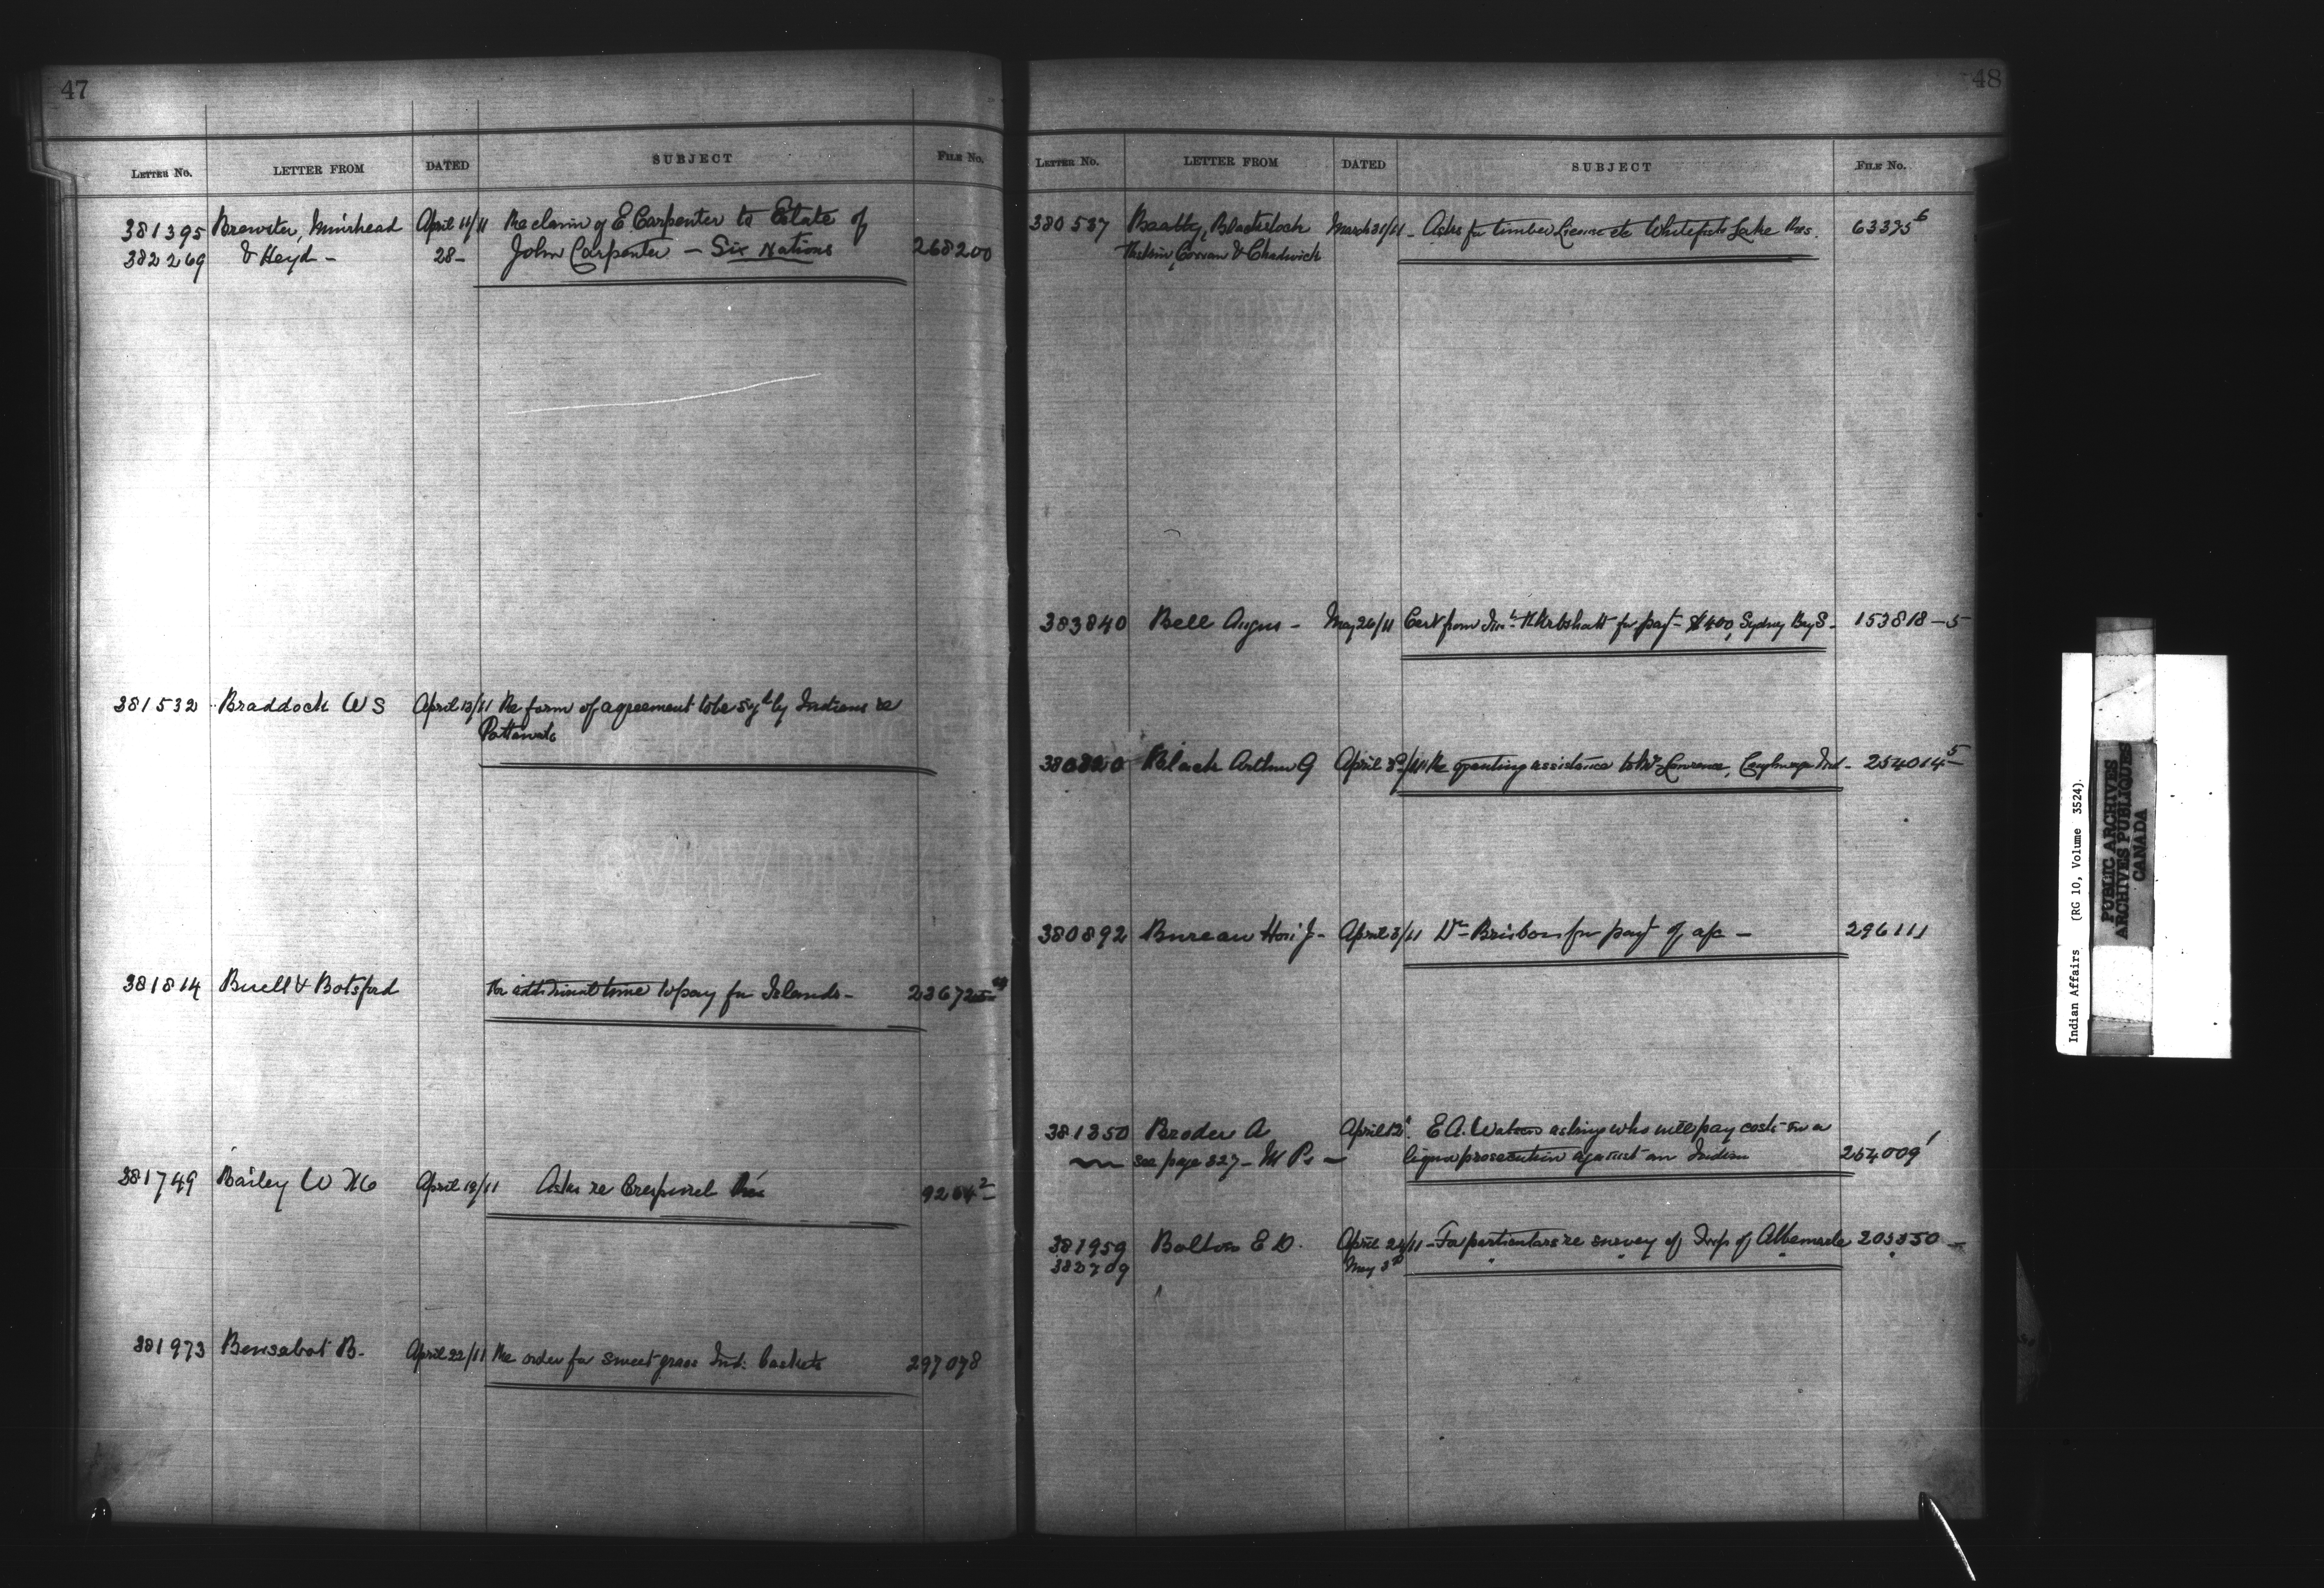 47
LETTER NO. LETTER FROM DATED SUBJECT FILE NO.
381395 Brewster, Muirhead April 11/11 Re claim of E Carpenter to Estate of
382269 & Heyd - 28 - John Carpenter - Six Nations 268200
381532 Braddock W S April 13/11 Re form of agreement to be sgd by Indians re
381814 Buell & Botsford Re additional time to pay for Islands -
381749 Bailey W April 18/11 Asks re
381973 Bensabat B. April 22/11 Re order for sweet grass Ind: baskets 297078
48
LETTER NO. LETTER FROM DATED SUBJECT FILE NO.
380537 Beatty, Blackstock March 31/11 - Asks for timber License etc Whitefish Lake Res. 63375 6
Fasken, Cowan & Chadwick
383840 Bell Angus - May 26/11 Cert from for payt $400, Sydney Bay S - 153818-5
Black Arthur G April Re granting assistance to Lawrence, Ind - 254014 5
380892 Bureau Hon J - April 3/11 Dr Brisbois for payt of a/c - 296111
381350 Broder A April 12 E A. Waters asking who will pay costs in a
see page 327 - M P. - liquor prosecution against an Indian 254009 1
381959 Bolton E D. April 24/11 - For particulars re survey of Twp of Albemarle 203350 -
382709 May 3rd " " " "
Indian Affairs (RG 10, Volume 3524)
PUBLIC ARCHIVES
ARCHIVES PUBLIQUES
CANADA